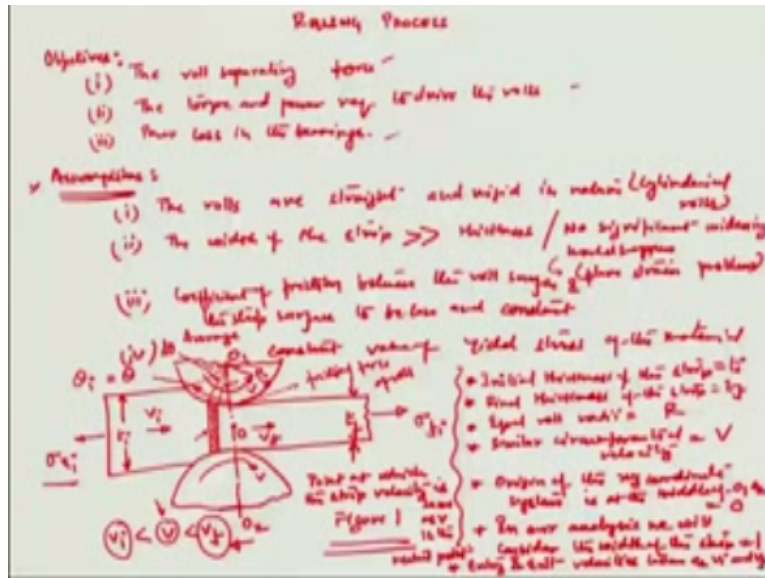 ROLLING PROCESS
Objectives:
(i) The roll separating force
(ii) The torque and power req. to drive the rolls
(iii) Power loss in the bearings.
Assumptions:
(i) The rolls are straight and rigid in nature (cylindrical rolls)
(ii) The width of the strip >> thickness / No significant widening would happen
(plane strain problem)
(iii) Coefficient of friction between the roll surface &
the strip surface to be low and constant
(iv) Average constant value of yield stress of the material
O₁
R
θi = θ
σxi
ti
Vi
O
Vf
tf
σxf
O₂
Vi < V < Vf
Point at which the strip velocity is
Figure 1
neutral point
* Initial thickness of the strip = ti
* Final thickness of the strip = tf
* Equal roll radii = R
* Similar circumferential velocity = V
* Origin of the xy coordinate
system is at the middle of O₁O₂ = O
* In our analysis we will
consider the width of the strip = 1
* Entry & exit velocities